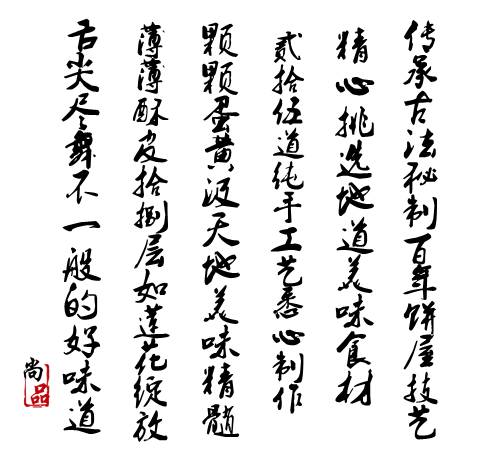 传承古法秘制百年饼屋技艺
精心挑选地道美味食材
贰拾伍道纯手工艺悉心制作
颗颗蛋黄汲天地美味精髓
薄薄酥皮拾捌层如莲花绽放
舌尖尽舞不一般的好味道
尚品